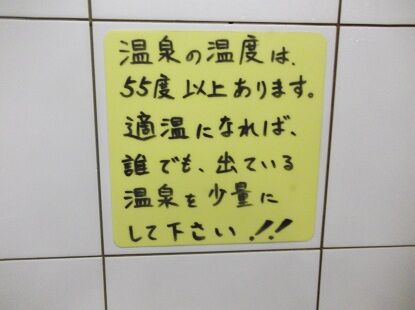 温泉の温度は、
55度以上あります。
適温になれば、
誰でも、出ている
温泉を少量に
して下さい!!